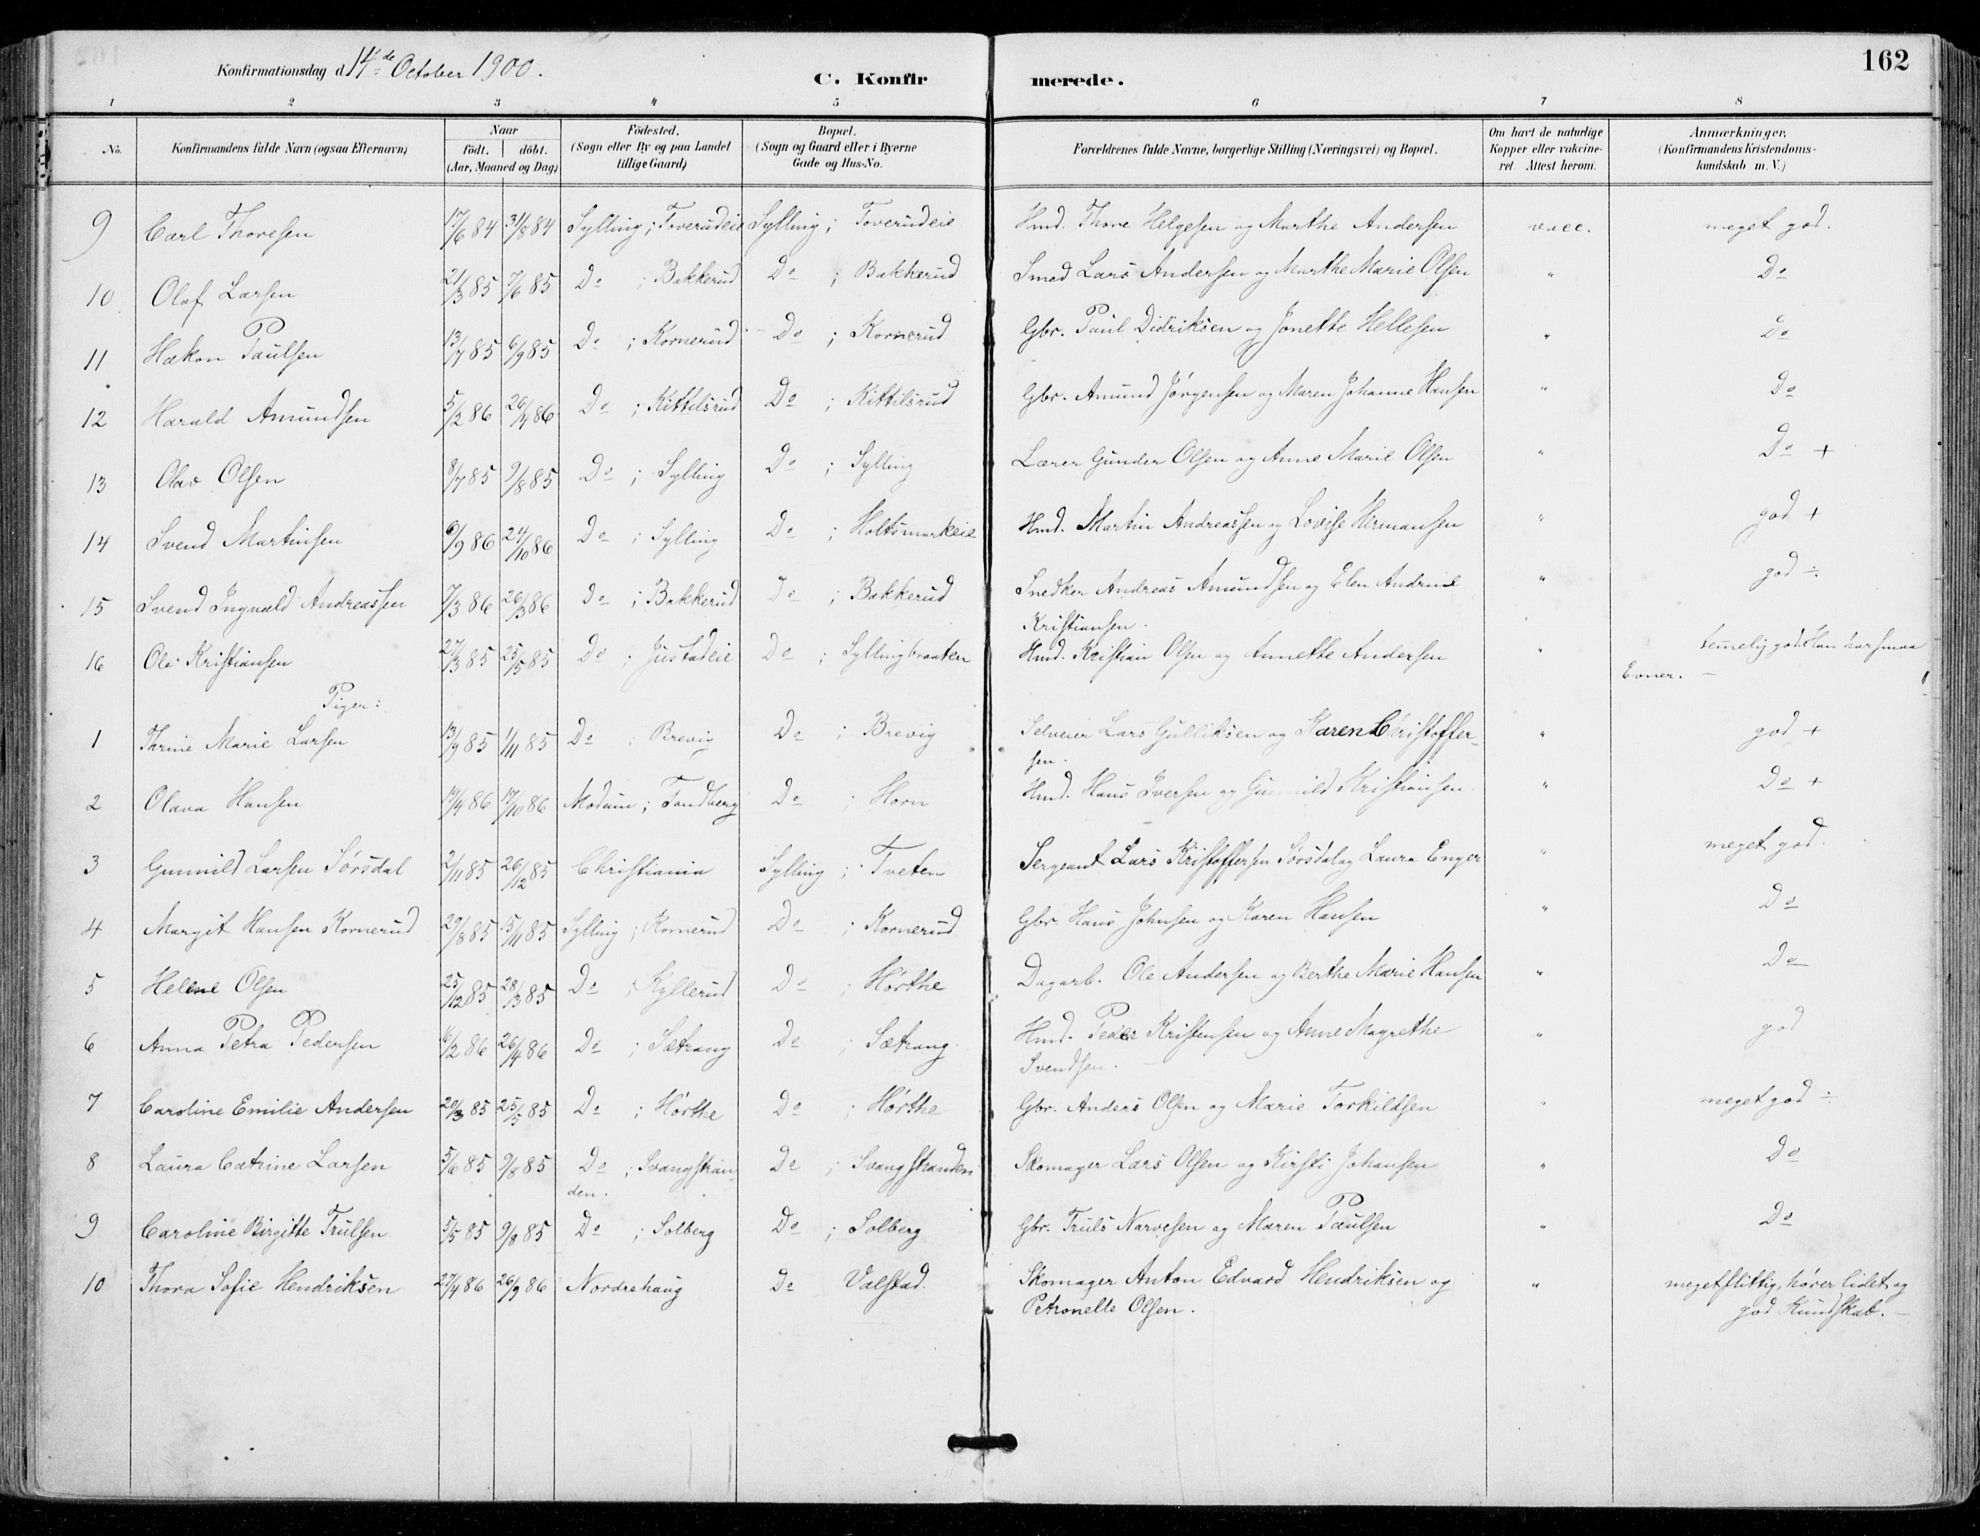 162
Konfirmationsdag d. 14de October 1900.
C. Konfirmerede.
1 2 3 4 5 6 7 8
No. Konfirmandens fulde Navn (ogsaa Efternavn) Naar födt. döbt. (Aar, Maaned og Dag) Födested. (Sogn eller By og paa Landet tillige Gaard) Bopæl. (Sogn og Gaard eller i Byerne Gade og Hus-No. Forældrenes fulde Navne, borgerlige Stilling (Næringsvei) og Bopæl. Om havt de naturlige Kopper eller vakcineret Attest herom. Anmærkninger. (Konfirmandens Kristendomskundskab m. V.)
9 Carl Thoresen 17/6 84 31/8 84 Sylling; Toverudeie Sylling; Toverudeie Hmd. Thore Helgesen og Marthe Andersen vacc. meget god.
10 Olaf Larsen 21/3 85 7/6 85 Do ; Bakkerud Do ; Bakkerud Smed Lars Andersen og Marthe Marie Olsen " Do
11 Hakon Paulsen 13/7 85 6/9 85 Do ; Kornerud Do ; Kornerud Gbr. Paul Didriksen og Jonette Hellesen " Do
12 Harald Amundsen 5/2 86 26/4 86 Do ; Kittilsrud Do ; Kittilsrud Gbr. Amund Jörgensen og Maren Johanne Hansen " Do
13 Olav Olsen 8/7 85 9/8 85 Do ; Sylling Do ; Sylling Lærer Gunder Olsen og Anne Marie Olsen " Do +
14 Svend Martinsen 6/9 86 24/10 86 Do ; Sylling Do ; Holtsmarkeie Hmd. Martin Andreassen og Lovise Hermansen " god +
15 Svend Ingvald Andreassen 7/3 86 26/3 86 Do ; Bakkerud Do ; Bakkerud Snedker Andreas Amundsen og Elen Andrine " god ÷
Kristiansen.
16 Ole Kristiansen 27/3 85 25/5 85 Do ; Justadeie Do ; Syllingbraaten Hmd. Kristian Olsen og Annette Andersen " temelig god. Han har smaa
Evner. —
Piger:
1 Thrine Marie Larsen 13/9 85 1/11 85 Do ; Brevig Do ; Brevig Selveier Lars Gulliksen og Karen Christoffer- " god +
sen.
2 Olava Hansen 17/4 86 17/10 86 Modum; Tandberg Do ; Horn Hmd. Hans Iversen og Gunnild Kristiansen. " Do +
3 Gunnild Larsen Sørsdal 2/11 85 26/12 85 Christiania Sylling; Tveten Sergeant Lars Kristoffersen Sørsdal og Laura Enger " meget god.
4 Margit Hansen Kornerud 29/8 85 15/11 85 Sylling; Kornerud Do ; Kornerud Gbr. Hans Johnsen og Karen Hansen " Do
5 Helene Olsen 25/12 85 28/3 85 Do ; Kyllerud Do ; Hörthe Dagarb. Ole Andersen og Berthe Marie Hansen " Do
6 Anna Petra Pedersen 6/2 86 26/4 86 Do ; Sætrang Do ; Sætrang. Hmd. Peder Kristensen og Anne Magrethe " god
Svendsen.
7 Caroline Emilie Andersen 20/3 85 25/5 85 Do ; Hörthe Do ; Hörthe Gbr. Anders Olsen og Marie Torkildsen " meget god ÷
8 Laura Catrine Larsen 5/6 85 9/8 85 Do ; Svangstran- Do ; Svangstranden Skomager Lars Olsen og Kirsti Johansen " Do
den.
9 Caroline Birgitte Trulsen 5/5 85 9/8 85 Do ; Solberg Do ; Solberg Gbr. Truls Narvesen og Maren Paulsen " Do
10 Thora Sofie Hendriksen 27/4 86 26/9 86 Nordrehaug Do Valstad. Skomager Anton Edvard Hendriksen og " meget flittig, hører lidet og
Petronelle Olsen. god Kundskab. —